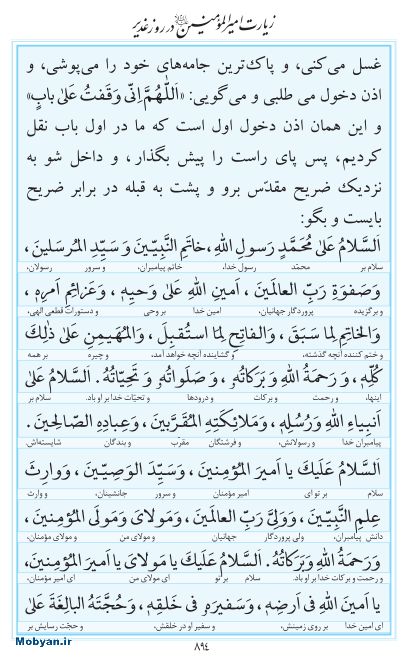 زیارت امیرالمؤمنین در روز غدیر
غسل می‌کنی، و پاك‌ترین جامه‌های خود را می‌پوشی، و
اذن دخول می طلبی و می‌گویی: «اَللّٰهُمَّ اِنّی وَقَفتُ عَلیٰ بابٍ»
و این همان اذن دخول اول است که ما در اول باب نقل
کردیم، پس پای راست را پیش بگذار، و داخل شو به
نزدیك ضریح مقدّس برو و پشت به قبله در برابر ضریح
بایست و بگو:
اَلسَّلامُ عَلیٰ مُحَمَّدٍ رَسولِ اللهِ، خاتَمِ النَّبِیّینَ وَ سَیِّدِ المُرسَلینَ،
سلام بر محمّد رسول خدا، خاتم پیامبران، و سرور رسولان،
وَ صَفوَةِ رَبِّ العالَمینَ، اَمینِ اللهِ عَلیٰ وَحیِهٖ، وَ عَزائِمِ اَمرِهٖ،
و برگزیده پروردگار جهانیان، امین خدا بر وحی و دستورات قطعی الهی،
وَالخاتِمِ لِما سَبَقَ، وَالفاتِحِ لِمَا استُقبِلَ، وَالمُهَیمِنِ عَلیٰ ذٰلِكَ
و ختم کننده آنچه گذشته، و گشاینده آنچه خواهد آمد، و چیره بر همه
کُلِّهٖ، وَ رَحمَةُ اللهِ وَ بَرَکاتُهٗ، وَ صَلَواتُهٗ وَ تَحِیّاتُهٗ. اَلسَّلامُ عَلیٰ
اینها، و رحمت و برکات و درودها و تحیّات خدا بر او باد. سلام بر
اَنبِیاءِ اللهِ وَ رُسُلِهٖ، وَ مَلائِکَتِهِ المُقَرَّبینَ، وَ عِبادِهِ الصّالِحینَ.
پیامبران خدا و رسولانش، و فرشتگان مقرّب و بندگان شایسته‌اش.
اَلسَّلامُ عَلَیكَ یا اَمیرَ المُؤمِنینَ، وَ سَیِّدَ الوَصِیّینَ، وَ وارِثَ
سلام بر تو ای امیر مؤمنان و سرور جانشینان، و وارث
عِلمِ النَّبِیّینَ، وَ وَلِیَّ رَبِّ العالَمینَ، وَ مَولایَ وَ مَولَی المُؤمِنینَ،
دانش پیامبران، ولی پروردگار جهانیان و مولای من و مولای مؤمنان،
وَ رَحمَةُ اللهِ وَ بَرَکاتُهٗ. اَلسَّلامُ عَلَیكَ یا مَولایَ یا اَمیرَ المُؤمِنینَ،
و رحمت و برکات خدا بر او باد. سلام بر تو ای مولای من ای امیر مؤمنان،
یا اَمینَ اللهِ فی اَرضِهٖ، وَ سَفیرَهٗ فی خَلقِهٖ، وَ حُجَّتَهُ البالِغَةَ عَلیٰ
ای امین خدا بر روی زمینش، و سفیر او در خلقش، و حجّت رسایش بر
٨٩٤
Mobyan.ir